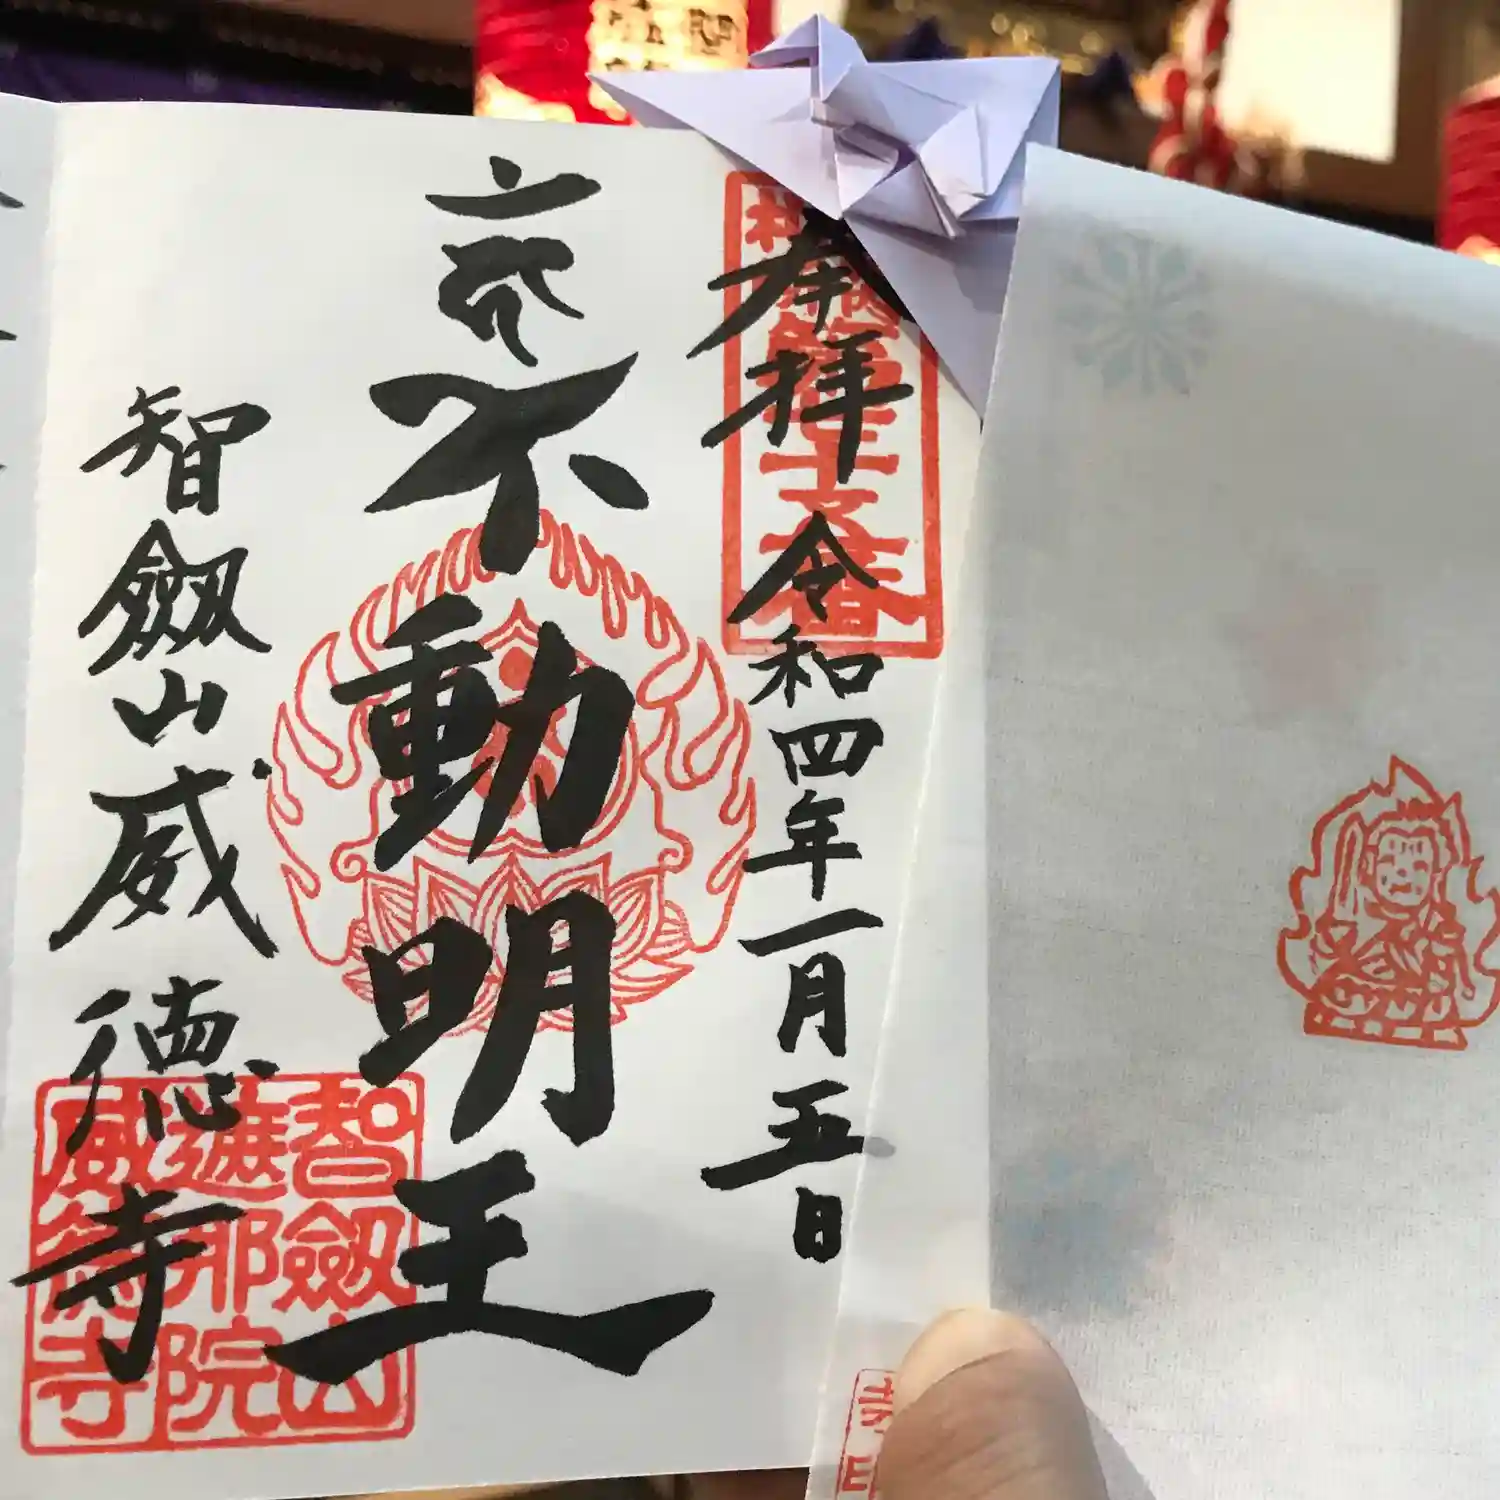 奉拝 令和四年一月五日
不動明王
智劔山威徳寺
第十六番
智劔山
遮那院
威徳寺